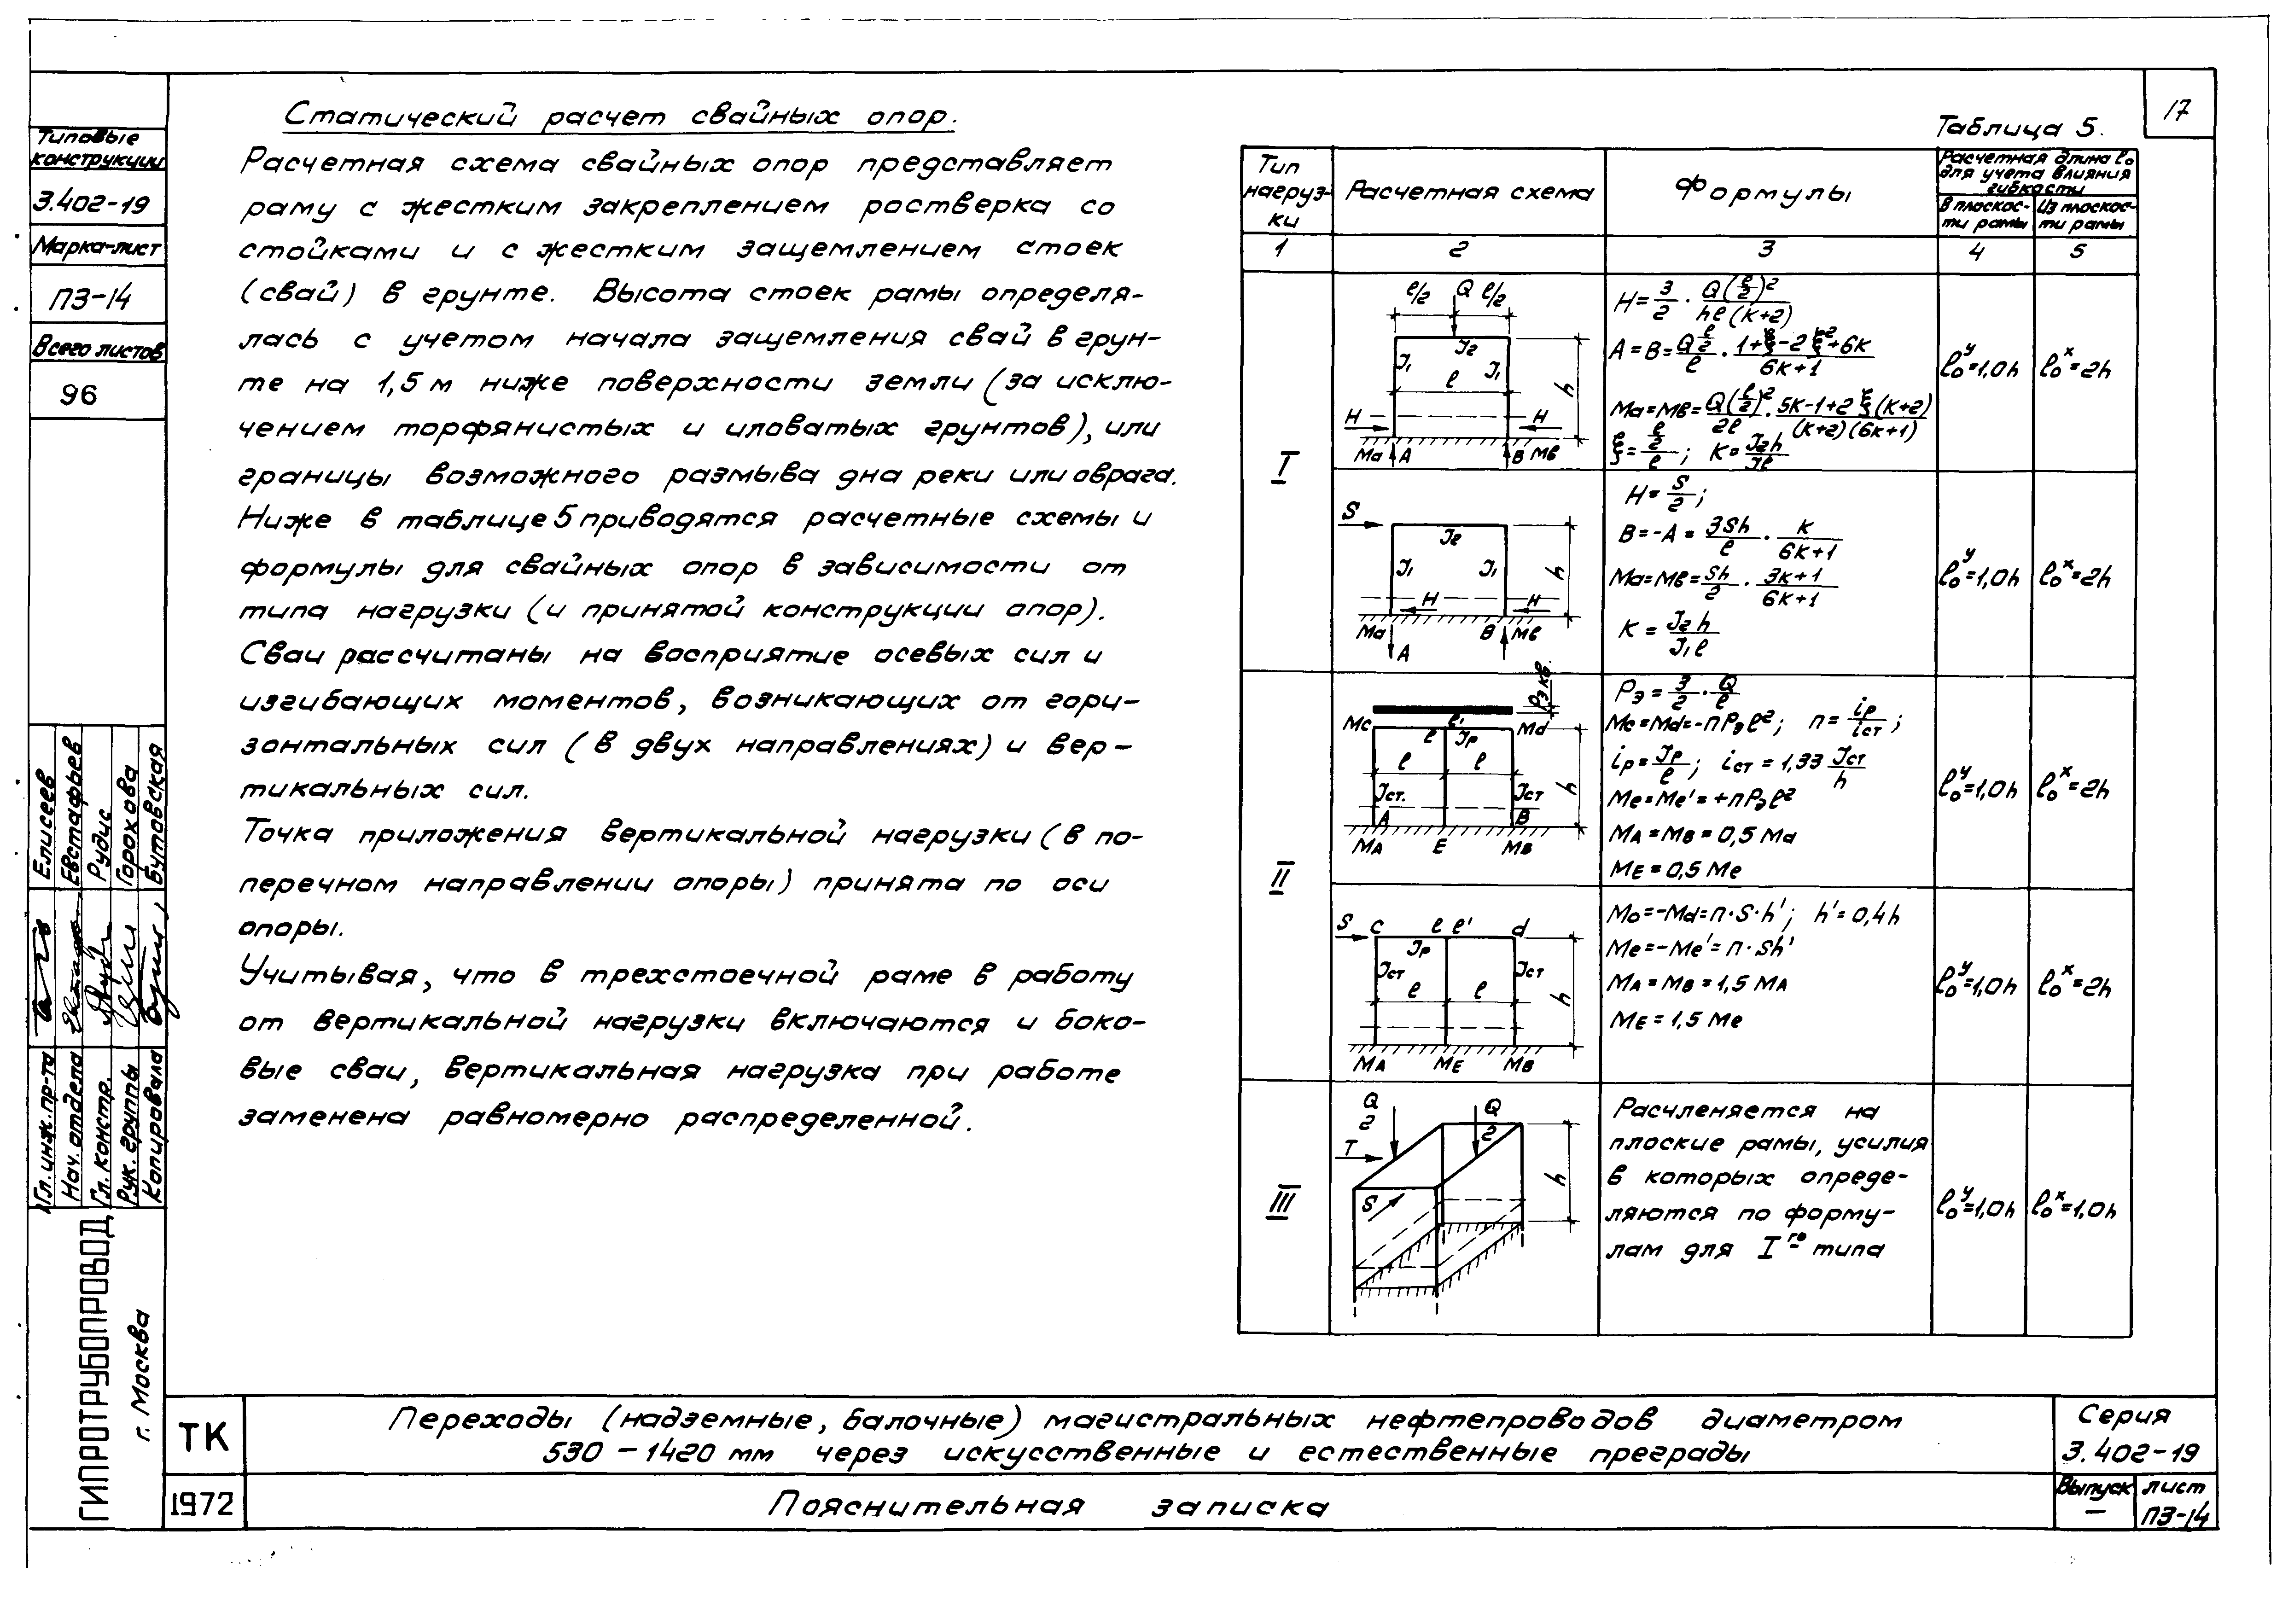 17
Типовые
конструкции
3.402-19
Марка-лист
ПЗ-14
Всего листов
96
Елисеев
Евстафьев
Рудис
Горохова
Бутовская
Гл. инж. пр-та
Нач. отдела
Гл. констр.
Рук. группы
Копировала
ГИПРОТРУБОПРОВОД
г. Москва
Статический расчет свайных опор.
Расчетная схема свайных опор представляет
раму с жестким закреплением ростверка со
стойками и с жестким защемлением стоек
(свай) в грунте. Высота стоек рамы определя-
лась с учетом начала защемления свай в грун-
те на 1,5 м ниже поверхности земли (за исклю-
чением торфянистых и иловатых грунтов), или
границы возможного размыва дна реки или оврага.
Ниже в таблице 5 приводятся расчетные схемы и
формулы для свайных опор в зависимости от
типа нагрузки (и принятой конструкции опор).
Сваи рассчитаны на восприятие осевых сил и
изгибающих моментов, возникающих от гори-
зонтальных сил (в двух направлениях) и вер-
тикальных сил.
Точка приложения вертикальной нагрузки (в по-
перечном направлении опоры) принята по оси
опоры.
Учитывая, что в трехстоечной раме в работу
от вертикальной нагрузки включаются и боко-
вые сваи, вертикальная нагрузка при работе
заменена равномерно распределенной.
Таблица 5.
Тип
нагруз-
ки
Расчетная схема
Формулы
Расчетная длина l₀
для учета влияния
гибкости
В плоскос-
ти рамы
Из плоскос-
ти рамы
1 2 3 4 5
I
l/2 Q l/2
J₂
J₁ J₁
l
h
H H
Ma A B Mв
H = 3/2 · Q(l/2)²/hl(K+2)
A = B = Q l/2 / l · 1+ξ-2ξ²+6K / 6K+1
Ma = Mв = Q(l/2)²/2l · 5K-1+2ξ(K+2) / (K+2)(6K+1)
ξ = l/2 / l ; K = J₂h/J₁l
l₀ʸ=1,0h
l₀ˣ=2h
S
J₂
J₁ J₁
h
H H
Ma A B Mв
H = S/2 ;
B = -A = 3Sh/l · K/6K+1
Ma = Mв = Sh/2 · 3K+1/6K+1
K = J₂h/J₁l
l₀ʸ=1,0h
l₀ˣ=2h
II
Рэкв.
Mc Md
l l' Jр
l l
Jст. Jст
h
A B
MA E MB
Pэ = 3/2 · Q/l
Mc = Md = -nPэl²; n = iр/iст ;
iр = Jр/l ; iст = 1,33 Jст/h
Me = Me' = +nPэl²
MA = MB = 0,5 Md
ME = 0,5 Me
l₀ʸ=1,0h
l₀ˣ=2h
S c l l' d
Jр
Jст Jст
l l
h
MA ME MB
Mo = -Md = n·S·h'; h' = 0,4h
Me = -Me' = n·Sh'
MA = MB = 1,5 MA
ME = 1,5 Me
l₀ʸ=1,0h
l₀ˣ=2h
III
Q/2 Q/2
T
S
h
Расчленяется на
плоские рамы, усилия
в которых опреде-
ляются по форму-
лам для I го типа
l₀ʸ=1,0h
l₀ˣ=1,0h
ТК
1972
Переходы (надземные, балочные) магистральных нефтепроводов диаметром
530 - 1420 мм через искусственные и естественные преграды
Пояснительная записка
Серия
3.402-19
Выпуск
—
лист
ПЗ-14